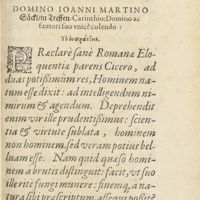 DOMINO IOANNI MARTINO
Carinthio: Domino ac
fautori suo vnicè colendo:
PRaclarè sanè Romana Elo-
quentia parens Cicero, ad
duas potissimùm res, Hominem na-
tum esse dixit: ad intelligendum ni-
mirùm & agendum. Deprehendit
enim vir ille prudentissimus: scien-
tia & virtute sublata, hominem
non hominem, sed veram potius bel-
luam esse. Nam quid quæso homi-
nem à brutis distinguit: facit, vt suo
ille ritè fungi munere: finemq́, à na-
tura sibi præscriptum, assequi possit